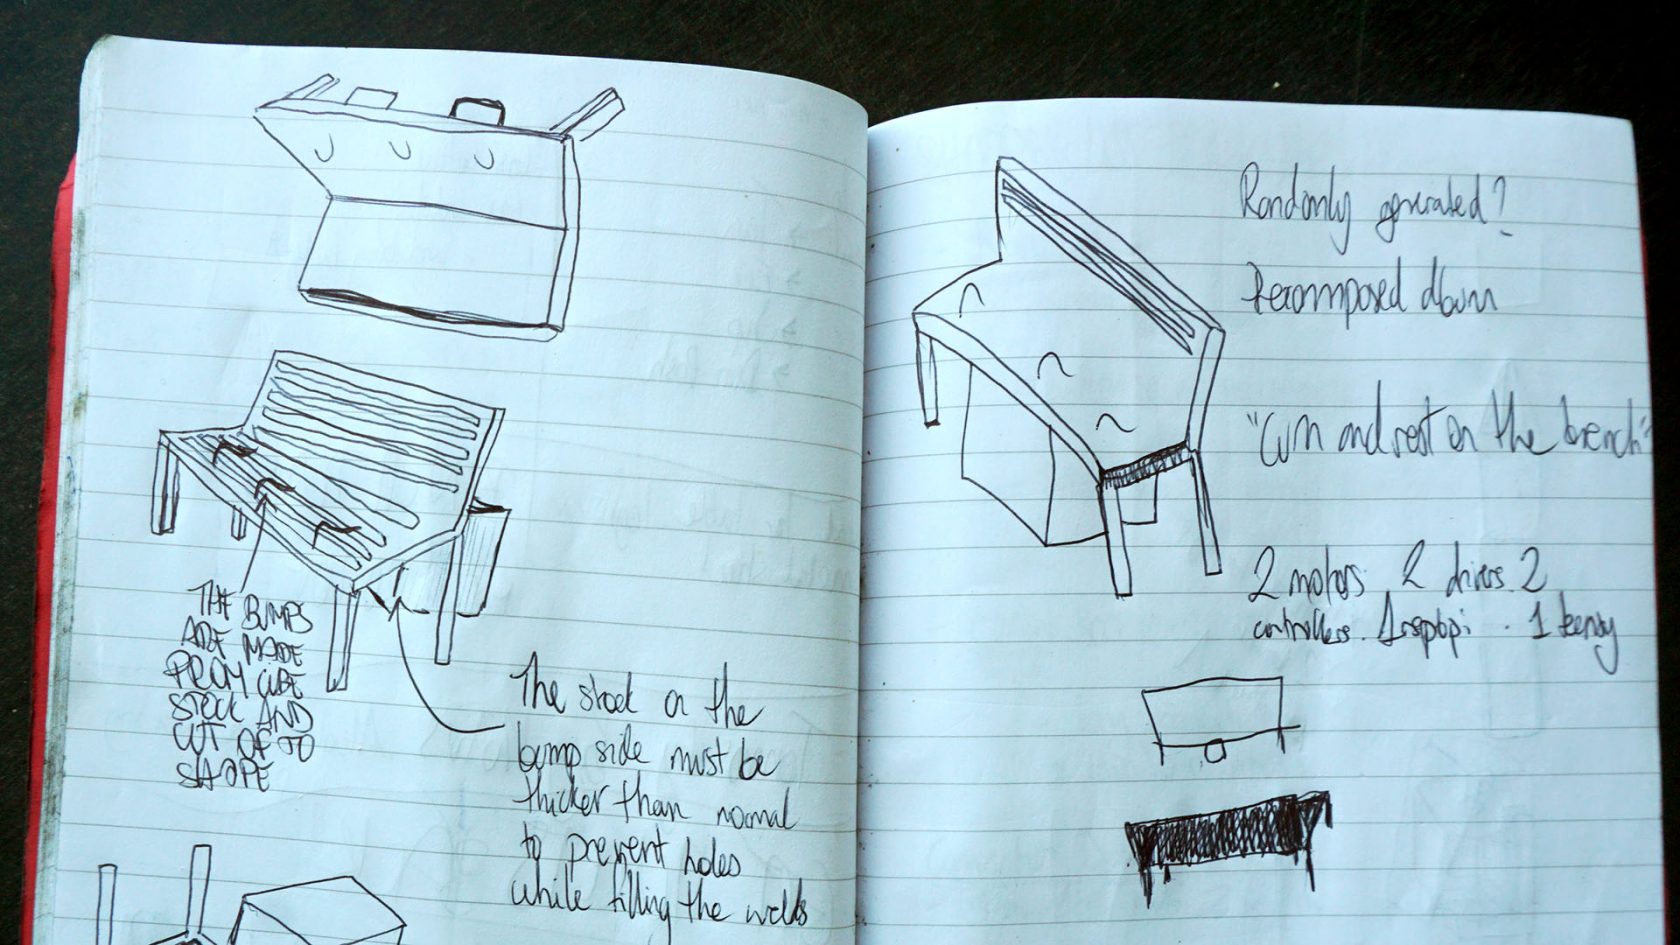 THE BUMPS
ARE MADE
FROM CUBE
STOCK AND
CUT OF TO
SHAPE
The stock on the
bump side must be
thicker than normal
to prevent holes
while filling the welds
Randomly generated?
Recomposed album
and rest on the bench"
2 motors. 2 drivers. 2
controllers. 1 raspbpi. 1 teensy